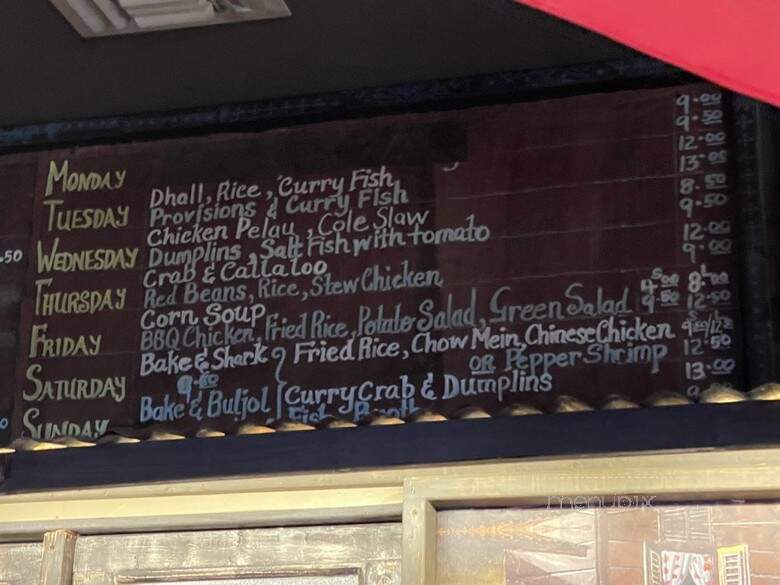 MONDAY
TUESDAY
WEDNESDAY
THURSDAY
FRIDAY
SATURDAY
SUNDAY
Dhall, Rice, Curry Fish
Provisions & Curry Fish
Chicken Pelau, Cole Slaw
Dumplins, Salt Fish with tomato
Crab & Callaloo
Red Beans, Rice, Stew Chicken
Corn Soup
BBQ Chicken, Fried Rice, Potato Salad, Green Salad
Bake & Shark
Fried Rice, Chow Mein, Chinese Chicken
OR Pepper Shrimp
Bake & Buljol
Curry Crab & Dumplins
9.00
9.50
12.00
13.00
8.50
9.50
12.00
9.00
8
12.50
12.50
13.00
.50
menupix